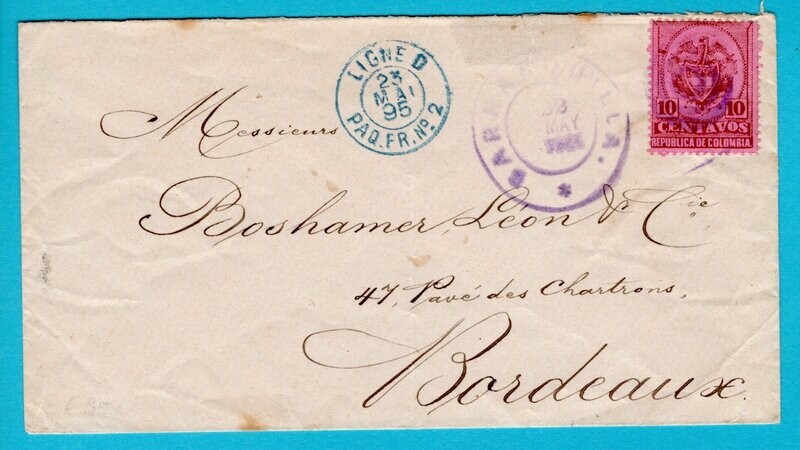 LIGNE D
23
MAI
95
PAQ. FR. Nº 2
BARRANQUILLA.
MAY
10 10
CENTAVOS
REPUBLICA DE COLOMBIA
Messieurs
Boshamer, Léon & Cie
47, Pavé des Chartrons,
Bordeaux.